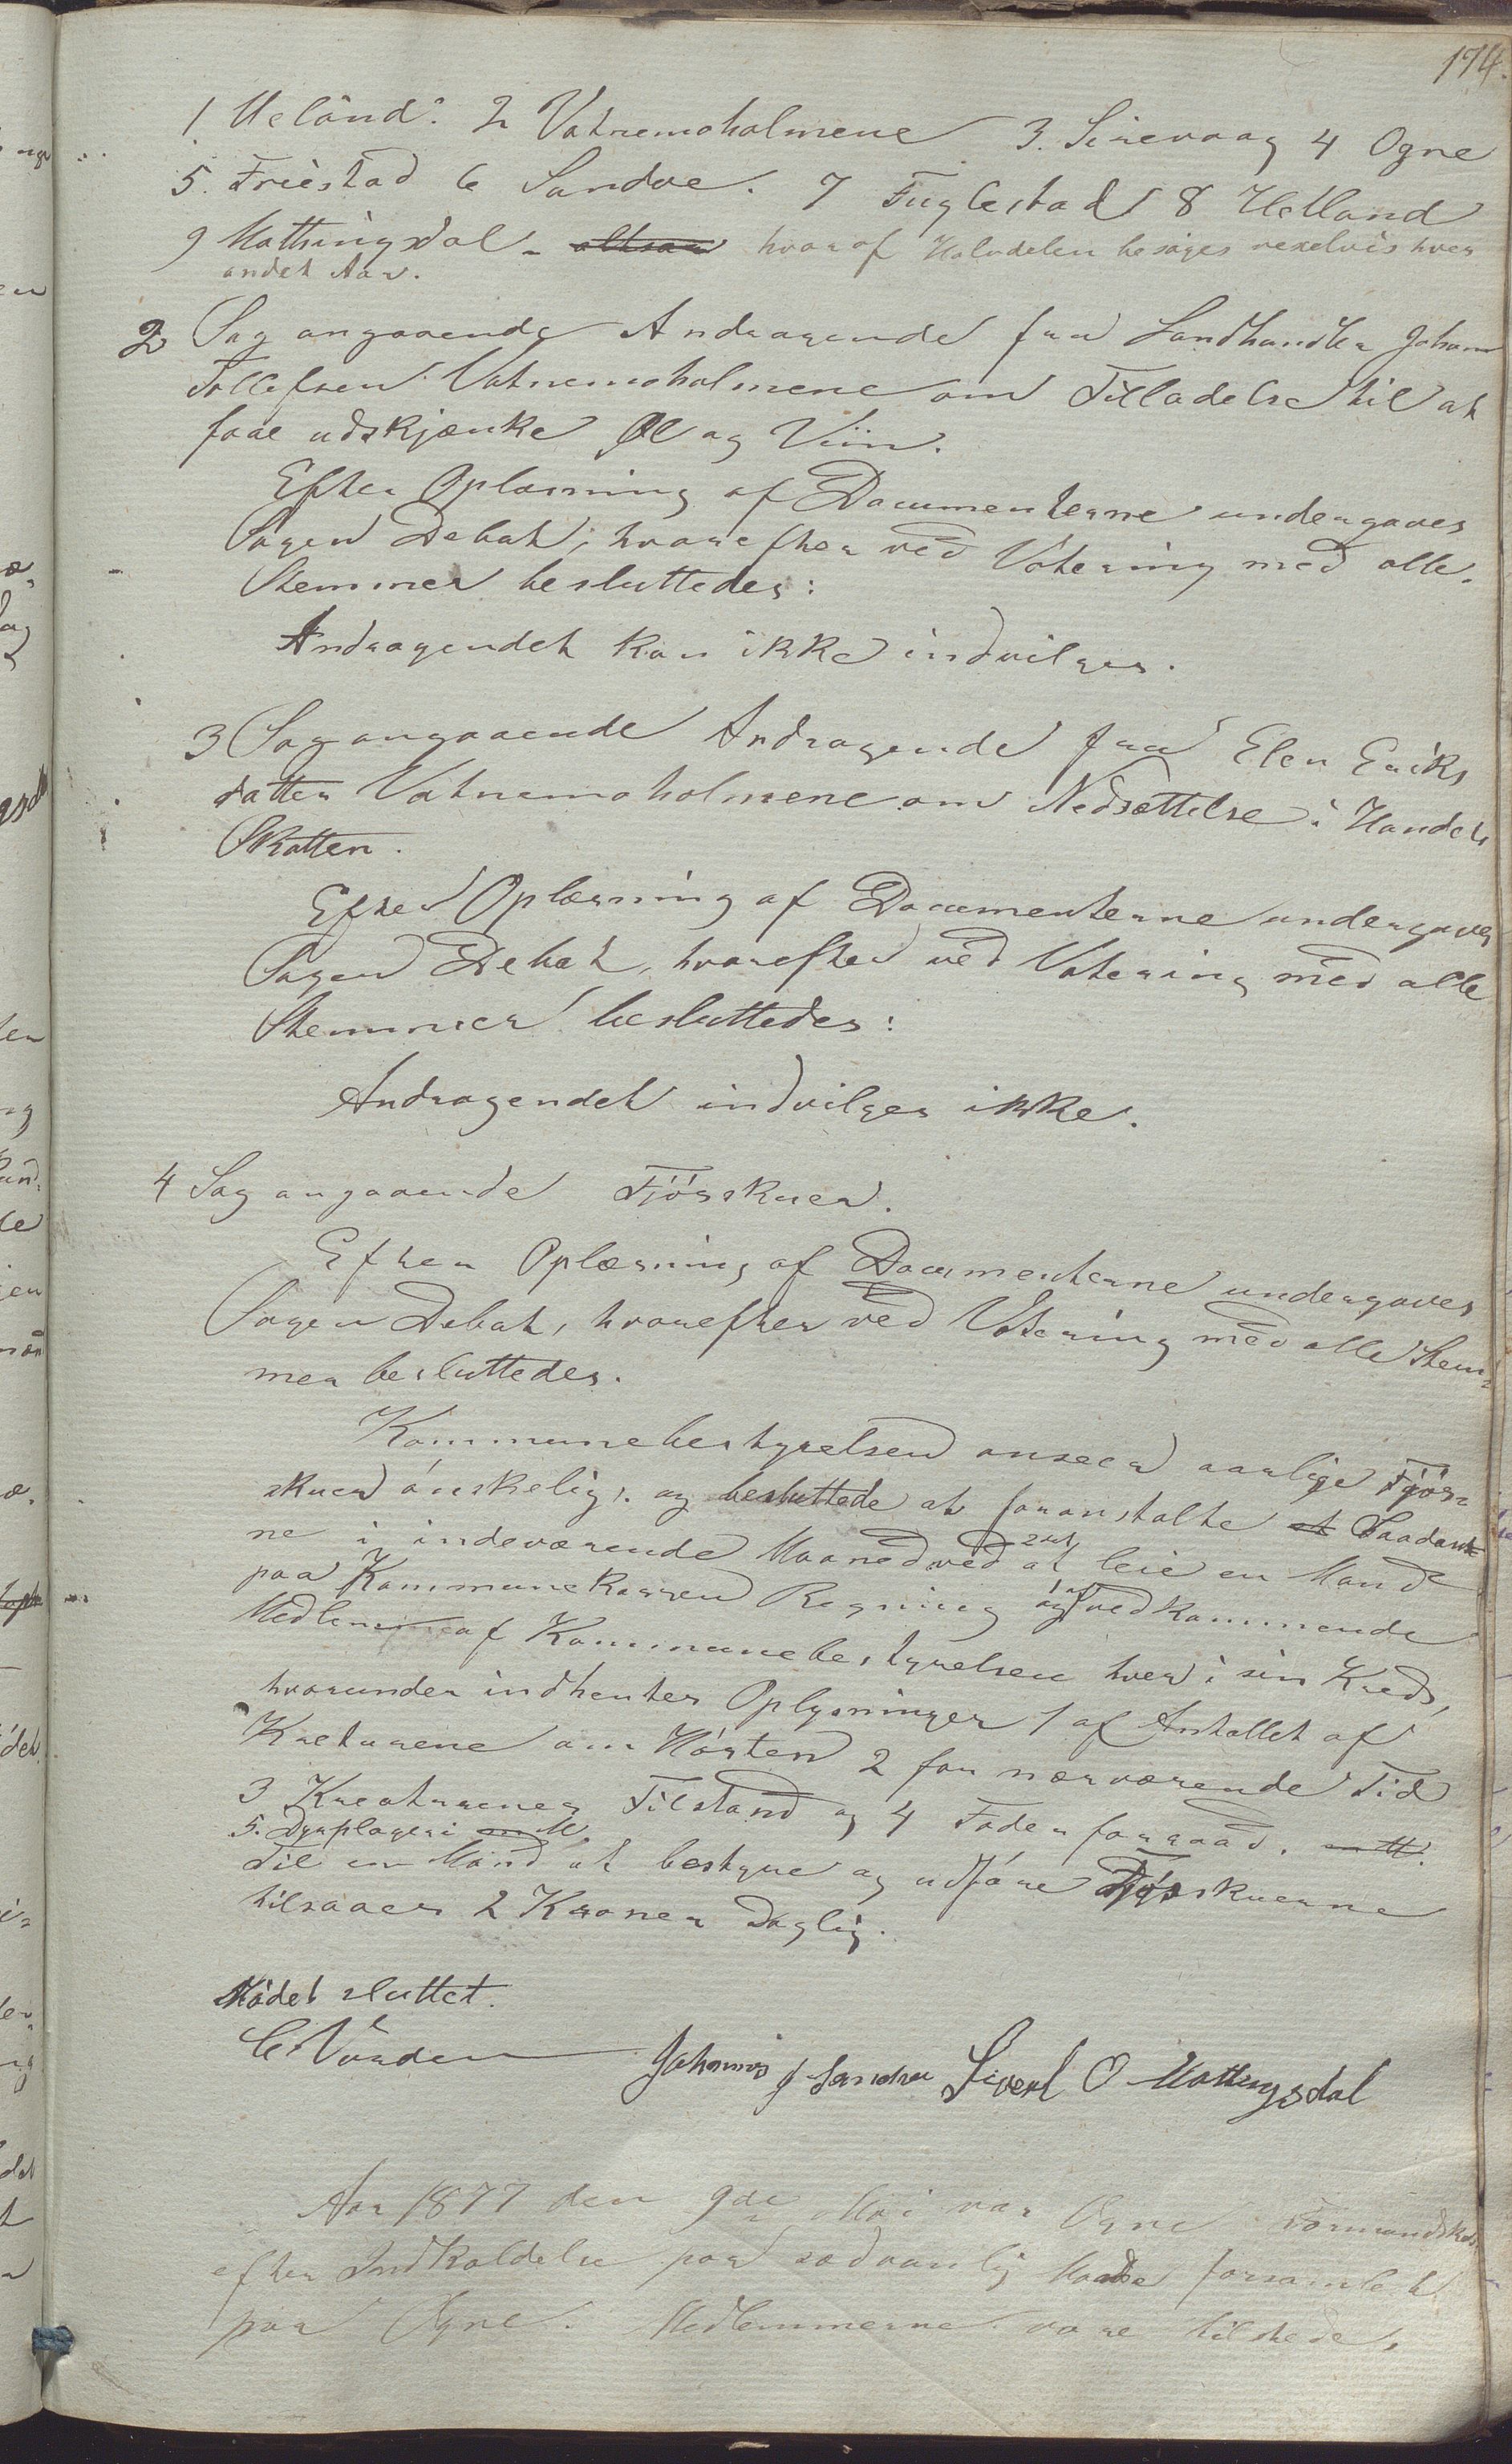 174.
1 Ueland. 2 Vatnemoholmene 3. Sirevaag 4 Ogne
5. Friestad 6 Sandve. 7 Fuglestad 8 Helland
9 Mattingsdal - altsaa hvoraf Halvdelen besøges vexelvis hver
andet Aar.
2 Sag angaaende Andragende fra Landhandler Johan
Tollefsen Vatnemoholmene om Tilladelse til at
faae udskjænke Øl og Viin.
Efter Oplæsning af Documenterne undergaves
Sagen Debat; hvorefter ved Votering med alle
Stemmer besluttedes:
Andragendet kan ikke indvilges.
3 Sag angaaende Andragende fra Elen Eriks
datter Vatnemoholmene om Nedsættelse i Handels
Skatten.
Efter Oplæsning af Documenterne undergaves
Sagen Debat, hvorefter ved Votering med alle
Stemmer besluttedes:
Andragendet indvilges ikke.
4 Sag angaaende Fjösskuer.
Efter Oplæsning af Documenterne undergaves
Sagen Debat, hvorefter ved Votering med alle Stem-
mer besluttedes.
Kommunebestyrelsen anseer aarlige Fjös-
skuer ónskelig. og besluttede at foranstalte et Saadant
ne i indeværende Maaned ved at leie en Mand
paa Kommunekassen Regning og af vedkommende
Medlem af Kommunebestyrelsen hver i sin Kreds,
hvorunder indhentes Oplysninger 1 af Antallet af
Kreturene om Hósten 2 for nærværende Tid
3 Kreaturenes Tilstand og 4 Foderforraad.
5. Dyrplageri
Til en Mand at bestyre og udföre Fjösskuerne
tilsaaes 2 Kroner Daglig.
Mödet sluttet.
C Vönden Johannis J Sandve Sivert O Mattingsdal
Aar 1877 den 9de Mai var Ogne Formandskab
efter Indkaldelse paa sædvanlig Maade forsamlet
paa Ogne. Medlemmerne vare tilstede,